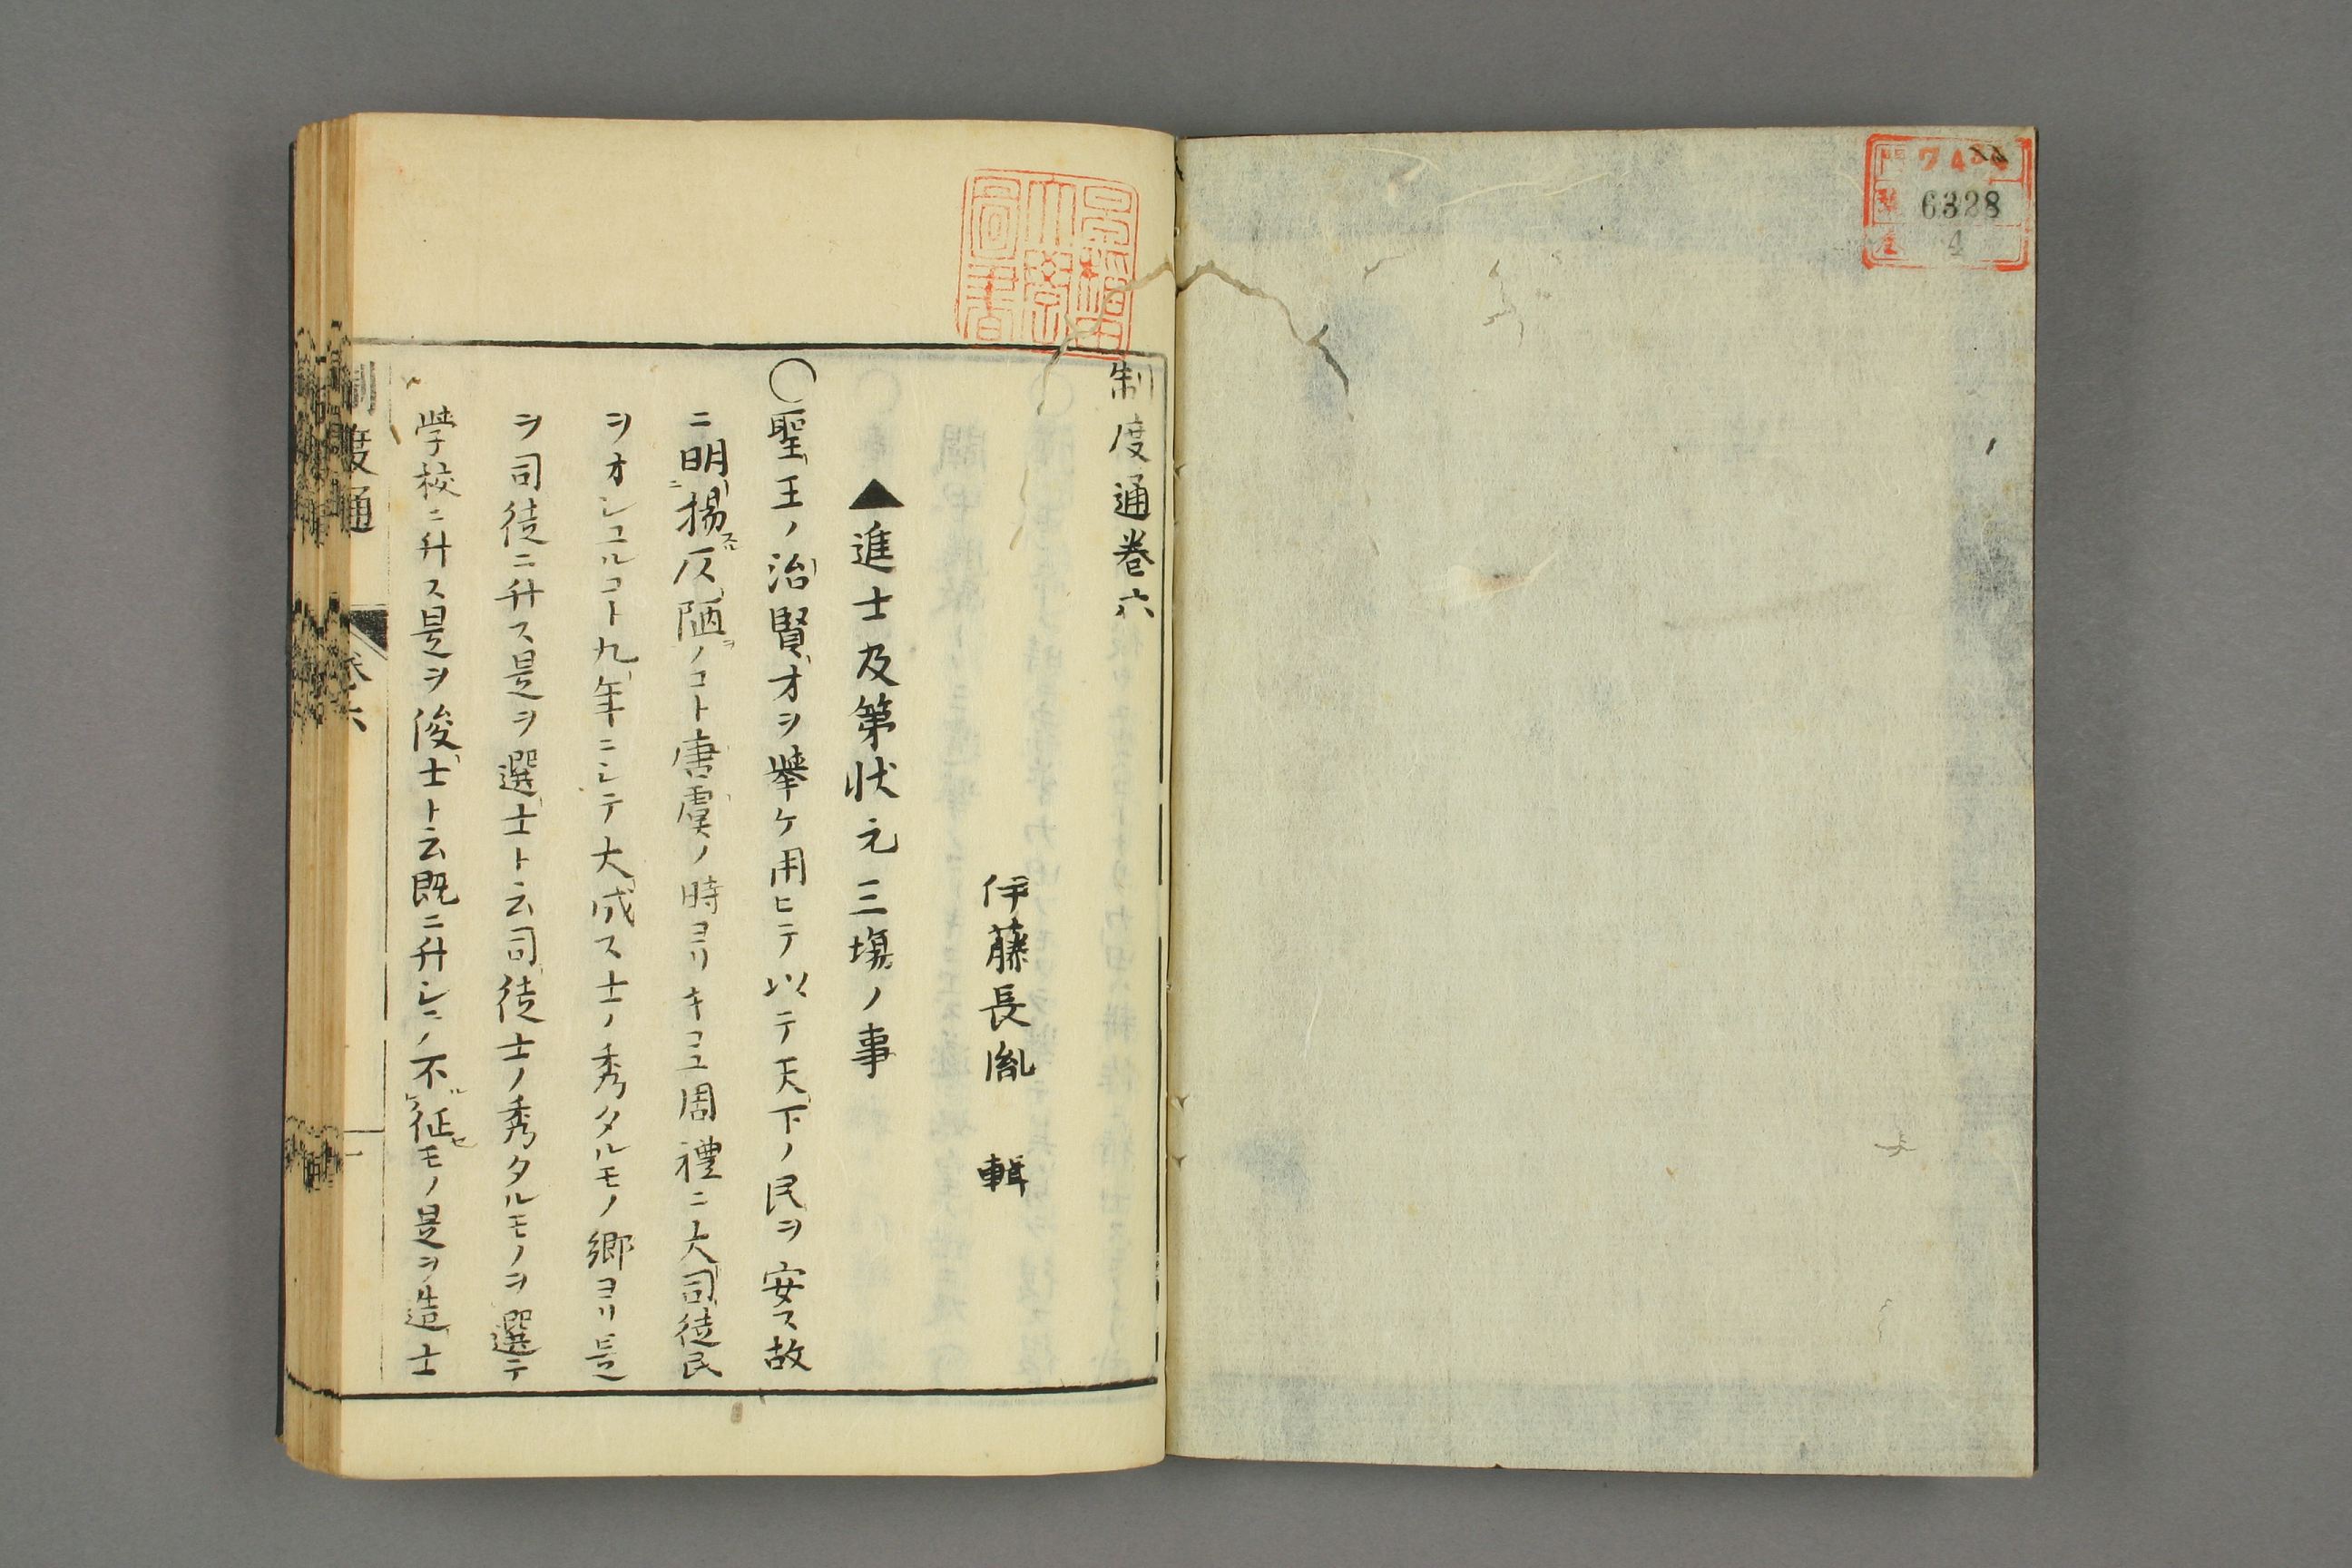 門 7 4
號 6328
卷 4
制度通卷六
伊藤長胤 輯
▲進士及第状元三塲ノ事
○聖王ノ治賢才ヲ舉ケ用ヒテ以テ天下ノ民ヲ安ス故
ニ明揚仄陋ノコト唐虞ノ時ヨリキコユ周禮ニ大司徒民
ヲオシユルコト九年ニシテ大成ス士ノ秀タルモノ郷ヨリ是
ヲ司徒ニ升ス是ヲ選士ト云司徒士ノ秀タルモノヲ選テ
学校ニ升ス是ヲ俊士ト云既ニ升シニノ不征モノ是ヲ造士
制度通 卷六 一